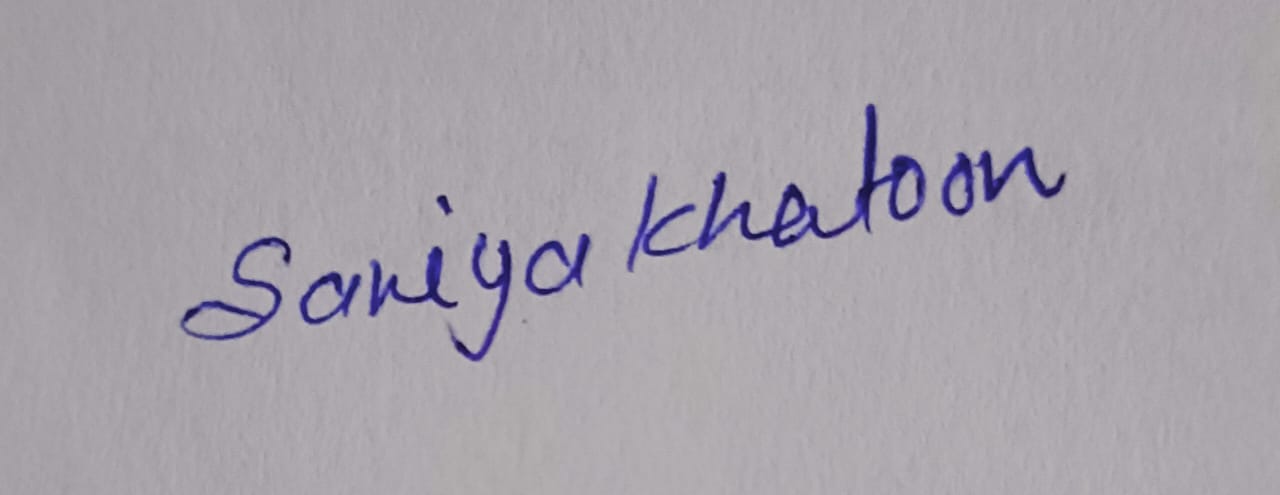 Saniya khatoon